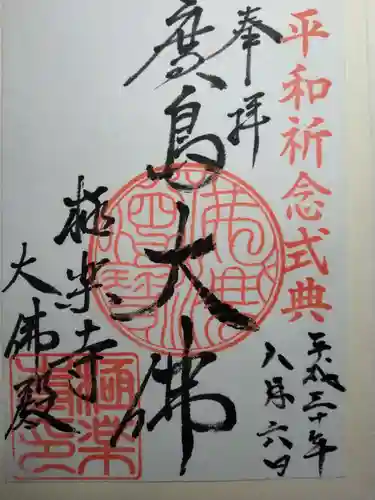 平和祈念式典
奉拝
平成三十年
八月六日
廣島大佛
極楽寺
大佛殿